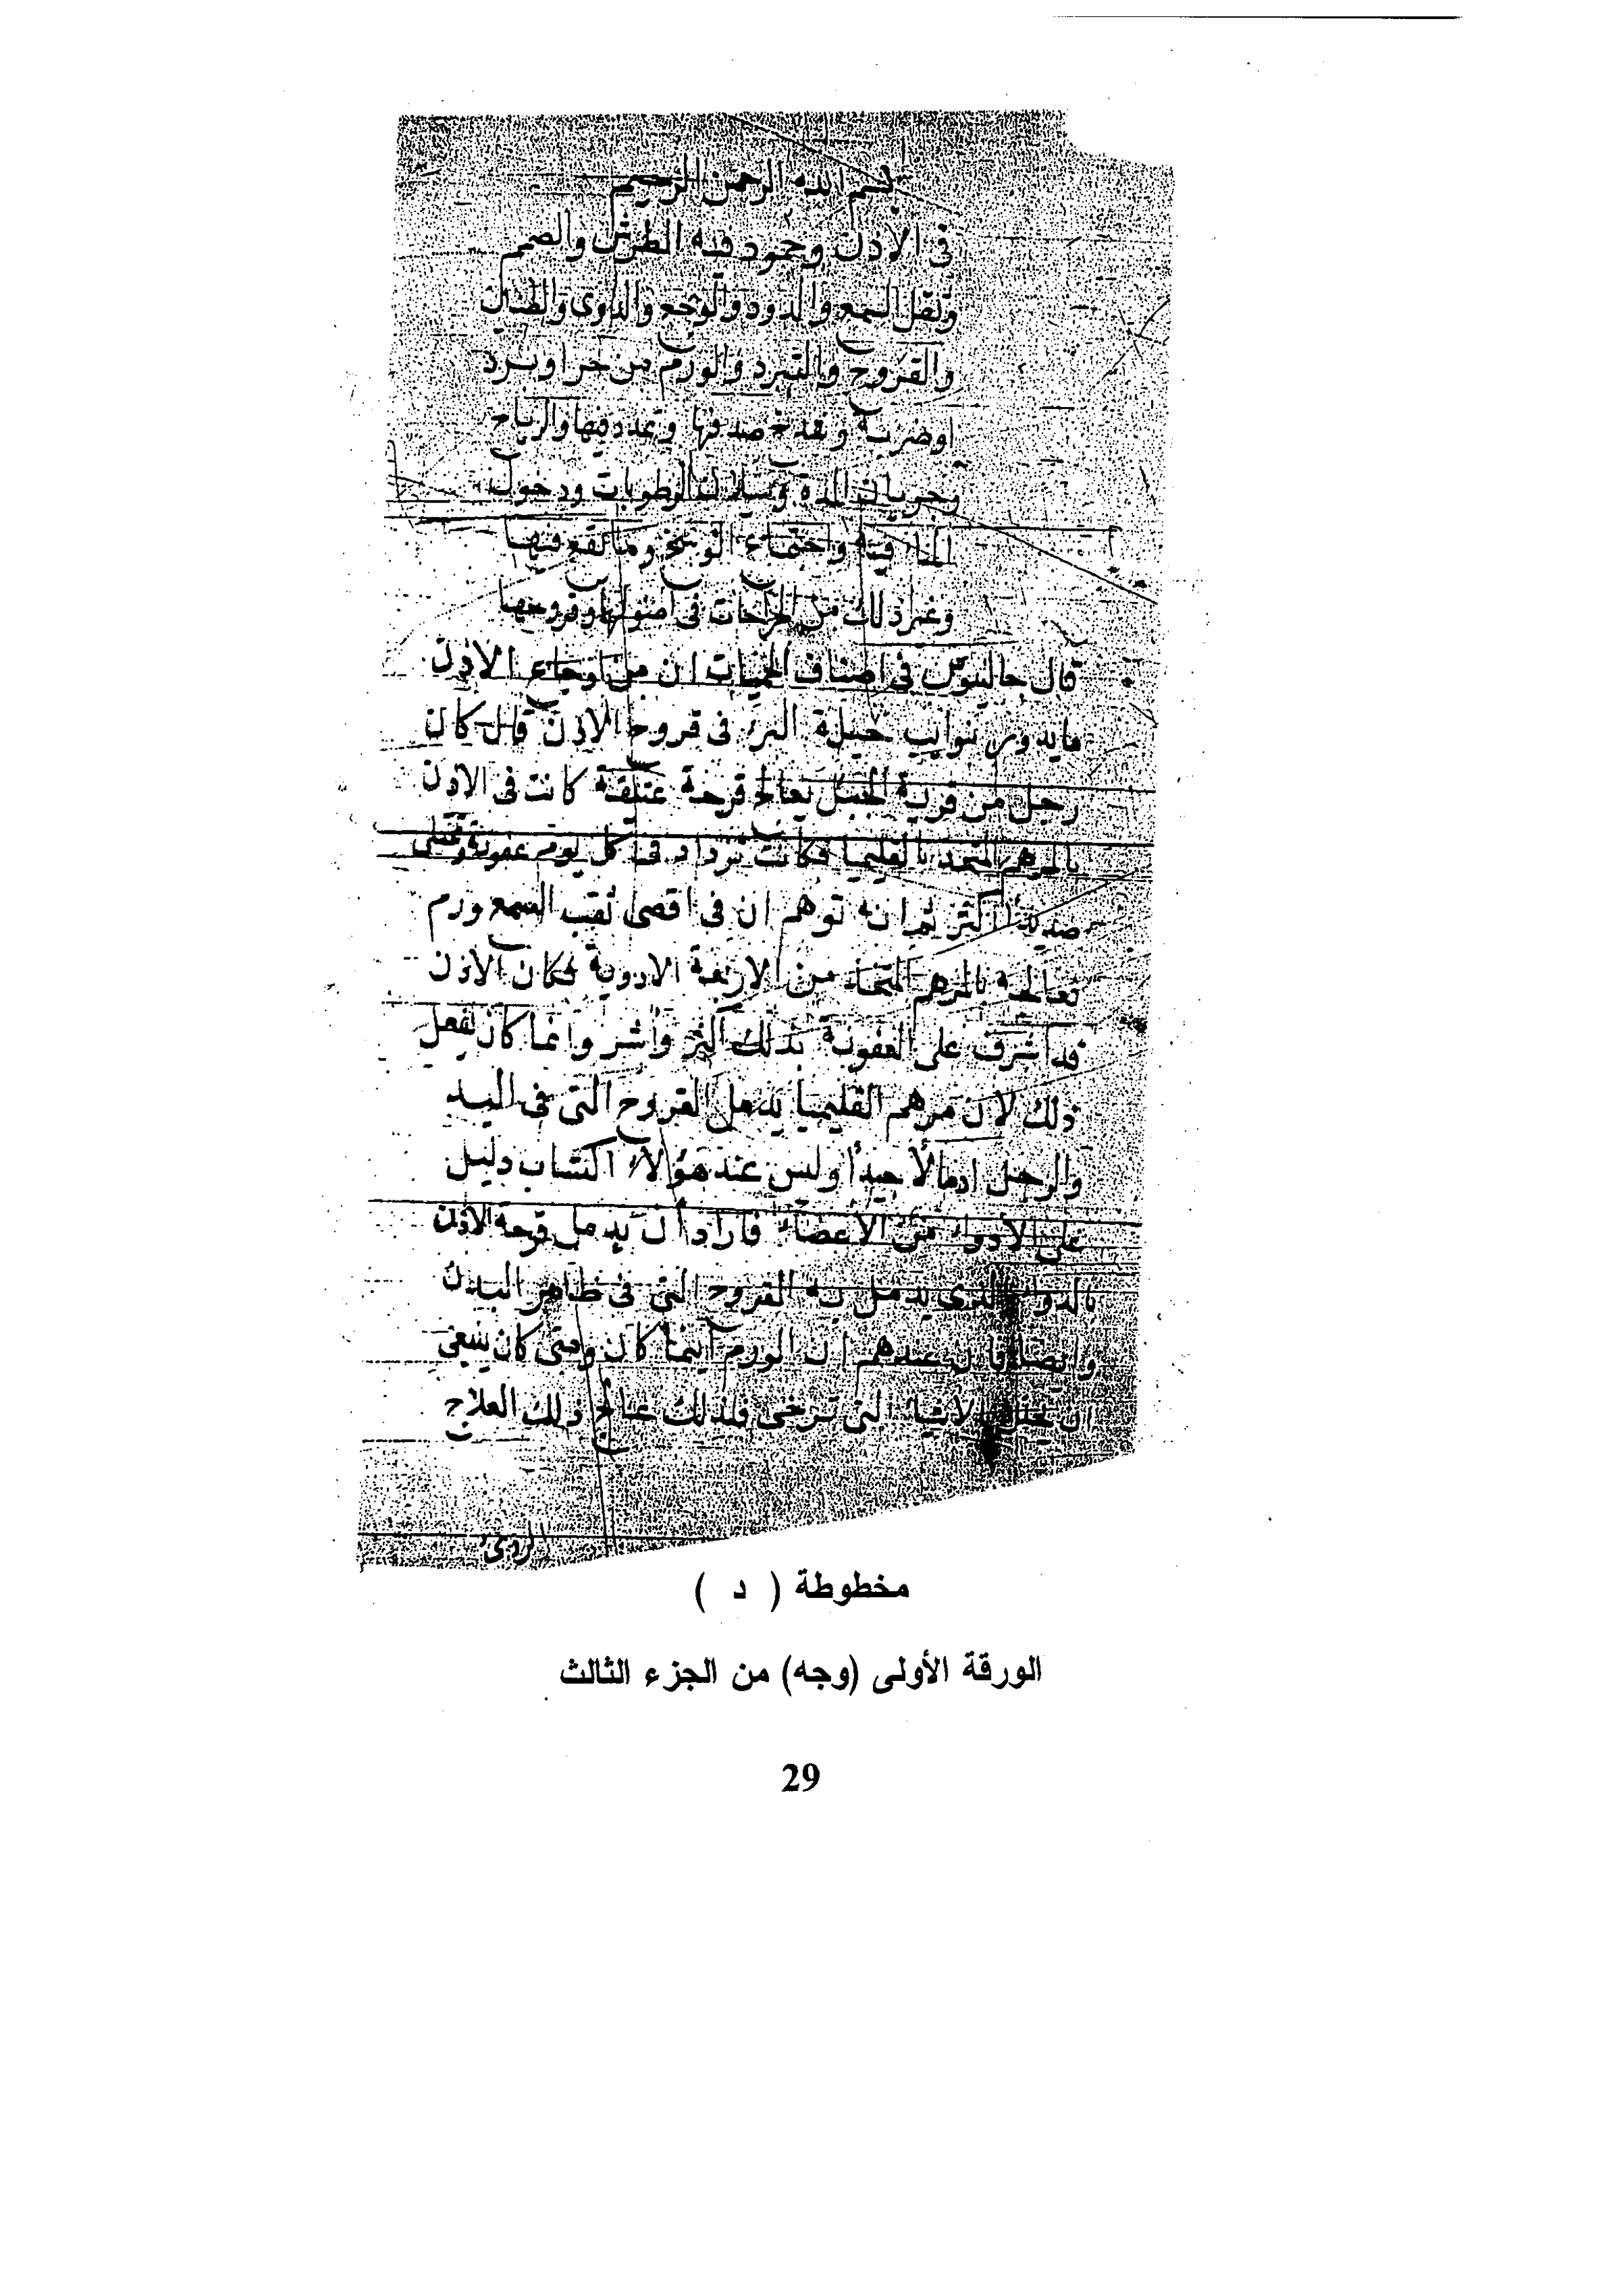 بسم الله الرحمن الرحيم
في الاذن وجمود فيه الطرش والصمم
وثقل السمع والدود والوجع والدوى والطنين
والقروح والتبرد والورم من حر او برد
او ضربة صدفها وتمدد فيها والرياح
وجريان المدة وسيلان الرطوبات ودخول
الماء فيها واجتماع الوسخ وما يقع فيها
وغير ذلك من الجراحات في اصولها وقروحها
قال جالينوس في اصناف الحميات ان من اوجاع الاذن
ما يدور بنوايب حيلة البرء في قروح الاذن قال كان
رجل من قرية الجبل يعالج قرحة عتيقة كانت في الاذن
بالمرهم المتخذ بالقليميا فكانت تزداد في كل يوم عفونة
صديدا اكثر ثم انه توهم ان في اقصى ثقب السمع ورم
فعالجه بالمرهم المتخذ من الاربعة الادوية فكان الاذن
قد اشرف على العفونة بذلك اكثر واشر وانما كان يفعل
ذلك لان مرهم القليميا يدمل القروح التي في اليد
والرجل ادمالا جيدا وليس عند هؤلاء اكتساب دليل
على الادواء من الاعضاء فاراد أن يدمل قرحة الاذن
بالدواء الذي يدمل به القروح التي في ظاهر البدن
وايضا فان عندهم ان الورم اينما كان ومتى كان ينبغي
ان بالاشياء التي ترخى فلذلك عالج ذلك العلاج
الردى
مخطوطة ( د )
الورقة الأولى (وجه) من الجزء الثالث
29